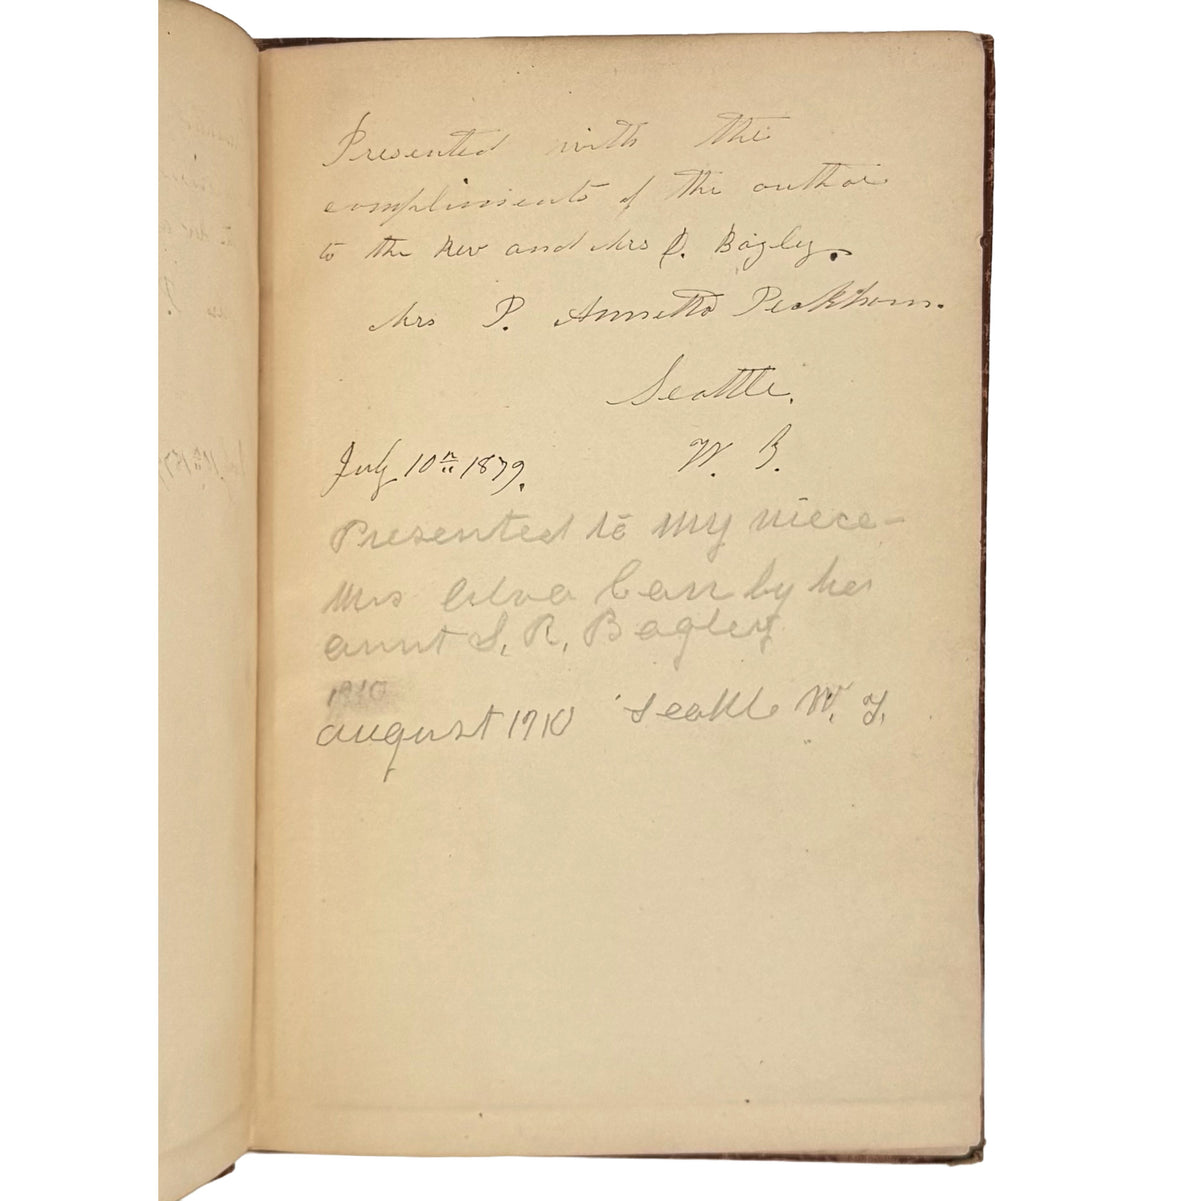 Presented with the
compliments of the author
to the Rev and Mrs D. Bagley.
Mrs P. Annetta Peckham.
Seattle.
July 10th 1879. W. T.
Presented to my niece-
Mrs Alva Can by her
aunt S. R. Bagley
1910
august 1910 Seattle W. T.